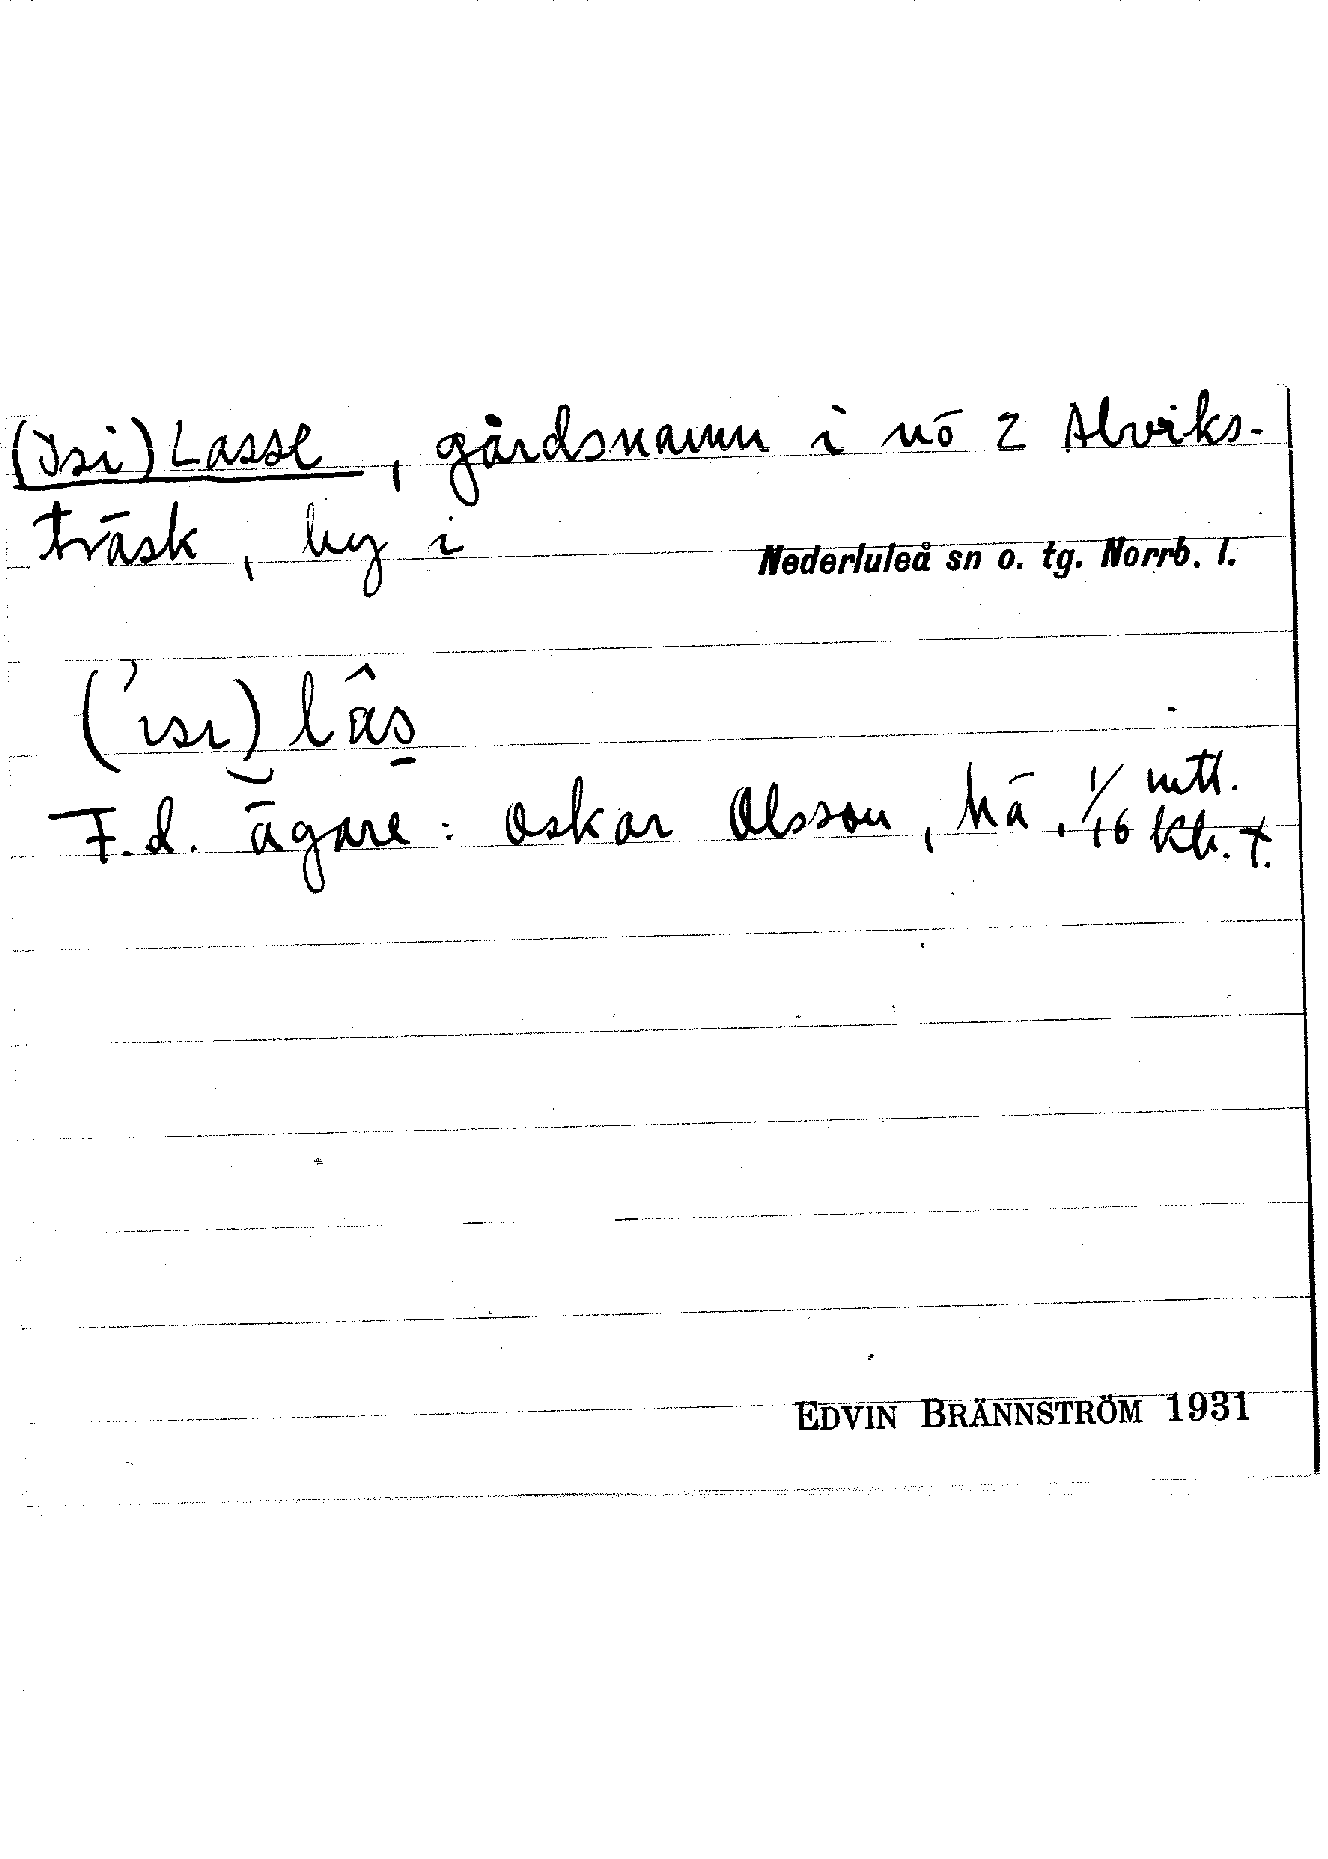 (Isi) Lasse, gårdsnamn i nō 2 Alviks-
träsk, by i Nederluleå sn o. tg. Norrb. l.
('ısı) lâs
F.d. ägare: Oskar Olsson, hä. 1/16 mtl. kb. t.
EDVIN BRÄNNSTRÖM 1931